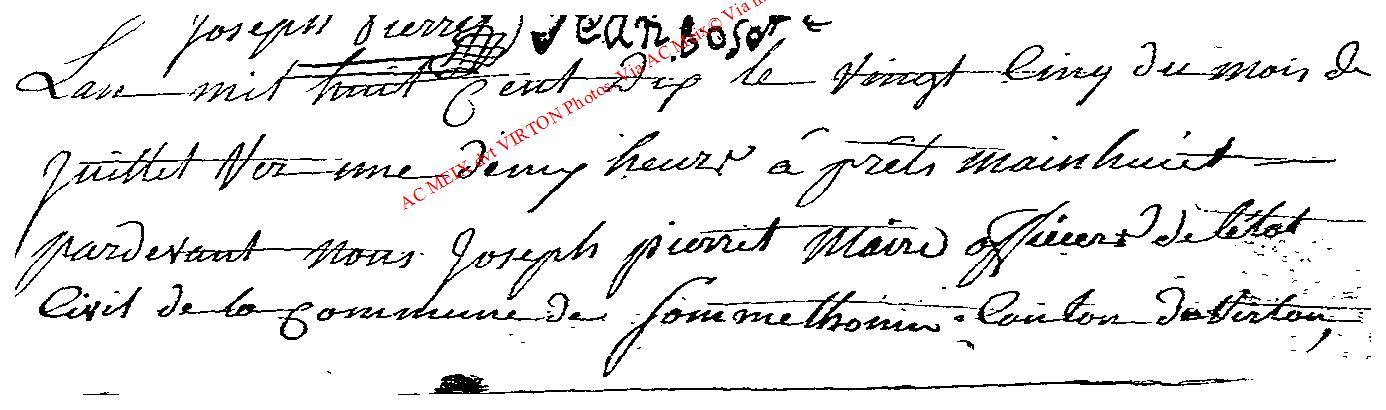 Joseph Pierret Jean Bosart
Lan mil huit Cent Dix le vingt Cinq du mois de
Juillet Ver une demy heure á prêts mainhuict
pardevant nous Joseph pierret Maire officiers de létat
Civil de la Commune de Sommethonne Canton de Virton,
AC MEIX dvt VIRTON Photos Via AC Meix © Via